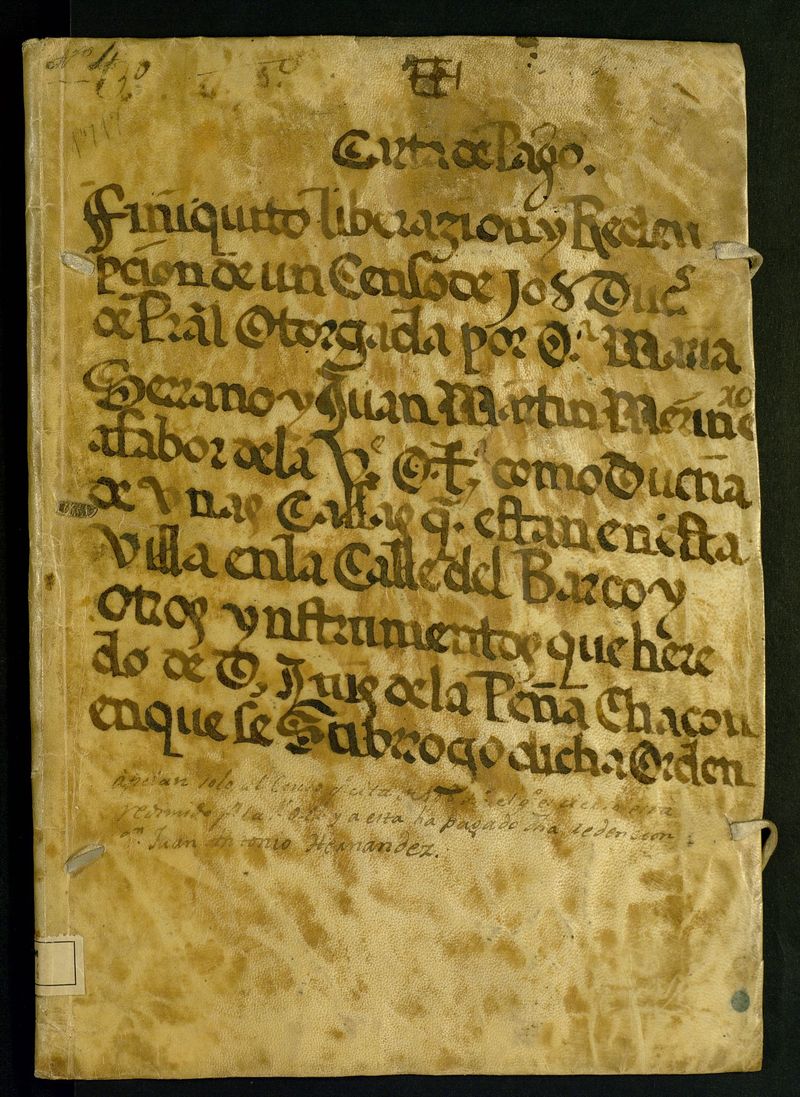 Nro 4
1717
Carta de Pago.
Finiquito liberazion y Reden
pcion de un Censo de Jo8 Ducs
de Pral Otorgada por D.a Maria
Serrano y Juan Martin Merinero
a fabor de la Ve O.T.a como Dueña
de Vnas Cassas q. estan en esta
Villa en la Calle del Barco y
otros ynstrumentos que here
do de D, Juis de la Peña Chacon
en que se Subrrogo dicha Orden
solo el Censo
redimido pr la Ve O. y a esta ha pagado dha redencion
Dn Juan Antonio Hernandez.